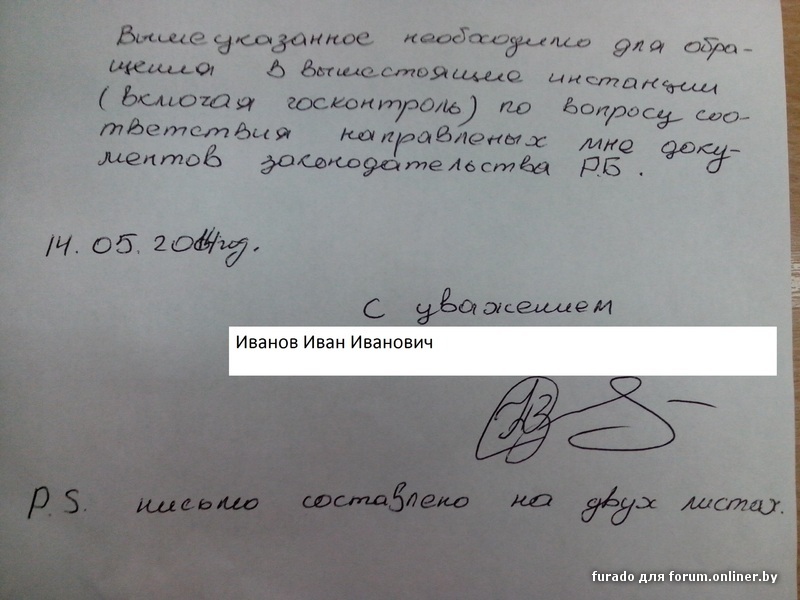 Вышеуказанное необходимо для обра-
щения в вышестоящие инстанции
(включая госконтроль) по вопросу соо-
тветствия направленых мне доку-
ментов законодательства Р.Б.
14.05.2014год.
С уважением
Иванов Иван Иванович
P.S. письмо составлено на двух листах.
furado для forum.onliner.by